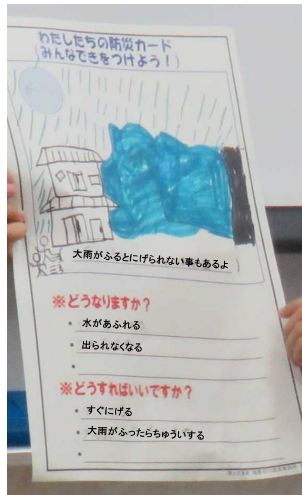 わたしたちの防災カード
(みんなできをつけよう!)
大雨がふるとにげられない事もあるよ
※どうなりますか?
・水があふれる
・出られなくなる
・
※どうすればいいですか?
・すぐにげる
・大雨がふったらちゅういする
・